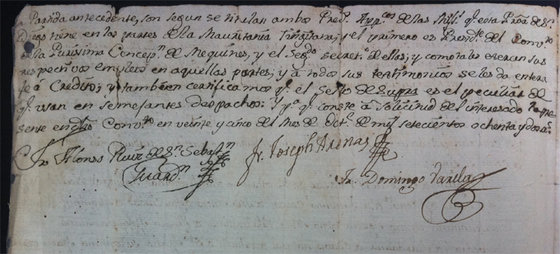 Partida antecedente, son segun se titulan ambos Pred.s App.cos de las Mis.s q.e esta Prov.a de S.n
Diego tiene en las partes de la Mauritania Tingitana; y el primero es Presid.te del Conv.to
de la Purisima Concep.n de Mequines, y el Seg.do Secret.o de ellas; y como tales exercen sus
respectivos empleos en aquellas partes; y a todos sus testimonios se les da entera
fe, y Credito; y tambien certificamos q.e el Sello de Supra es el peculiar de q.e
usan en semejantes despachos: Y p.a q.e conste a Solicitud del interesado
sente en dho Conv.to en veinte, y cinco del Mes de Oct.e de mil setecientos ochenta y dos a.s
Fr. Alonso Ruiz de S.n Sebast.n
Guard.n
Fr. Joseph Arenas
Fr. Domingo Varela